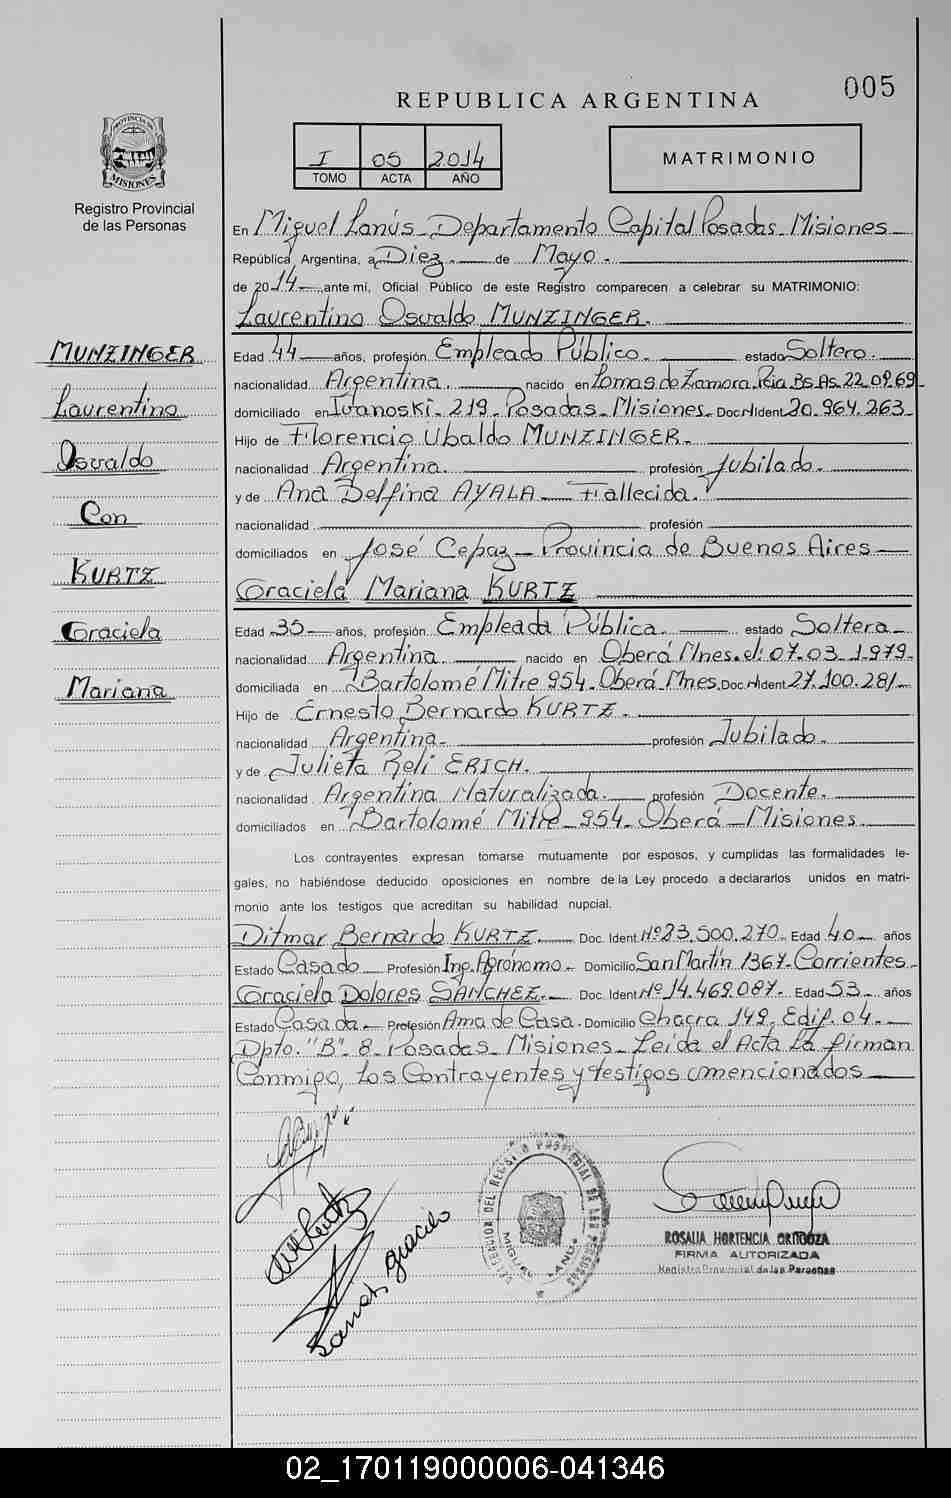 005
REPUBLICA ARGENTINA
PROVINCIA DE
MISIONES
Registro Provincial
de las Personas
I 05 2014
TOMO ACTA AÑO
MATRIMONIO
En Miguel Lanús - Departamento Capital Posadas - Misiones -
República Argentina, a Diez.- de Mayo -
de 2014 - ,ante mí, Oficial Público de este Registro comparecen a celebrar su MATRIMONIO:
Laurentino Osvaldo MUNZINGER.
MUNZINGER
Laurentino
Osvaldo
Con
KURTZ
Graciela
Mariana
Edad 44 - años, profesión Empleado Público. - estado Soltero.
nacionalidad Argentina. - nacido en Lomas de Zamora. Pcia Bs. As. 22.09.69
domiciliado en Ivanoski - 219 - Posadas - Misiones - Doc. N Ident 20.964.263 -
Hijo de Florencio Ubaldo MUNZINGER. -
nacionalidad Argentina. - profesión Jubilado. -
y de Ana Delfina AYALA - Fallecida.
nacionalidad profesión
domiciliados en José C. Paz - Provincia de Buenos Aires -
Graciela Mariana KURTZ
Edad 35 - años, profesión Empleada Pública. - estado Soltera -
nacionalidad Argentina. - nacido en Oberá Mnes. el: 07.03.1979 -
domiciliada en Bartolomé Mitre 954 - Oberá - Mnes. Doc. N Ident 27.100.281 -
Hijo de Ernesto Bernardo KURTZ. -
nacionalidad Argentina - profesión Jubilado.
y de Julieta Reli ERICH.
nacionalidad Argentina Naturalizada. - profesión Docente.
domiciliados en Bartolomé Mitre - 954 - Oberá - Misiones
Los contrayentes expresan tomarse mutuamente por esposos, y cumplidas las formalidades le-
gales, no habiéndose deducido oposiciones en nombre de la Ley procedo a declararlos unidos en matri-
monio ante los testigos que acreditan su habilidad nupcial.
Ditmar Bernardo KURTZ. - Doc. Ident Nº 23.500.270 - Edad 40 - años
Estado Casado - Profesión Ing. Agrónomo - Domicilio San Martín 1367 - Corrientes -
Graciela Dolores SÁNCHEZ. - Doc. Ident Nº 14.469.087 - Edad 53 - años
Estado Casada - Profesión Ama de Casa. Domicilio Chacra 149, Edif. 04. -
Dpto. "B" - 8 - Posadas - Misiones - Leída el Acta la firman
Conmigo, Los Contrayentes y testigos mencionados -
DELEGACION DEL REGISTRO PROVINCIAL DE LAS PERSONAS
MIGUEL LANUS
ROSALIA HORTENCIA ORTOGOZA
FIRMA AUTORIZADA
Registro Provincial de las Personas
02_170119000006-041346